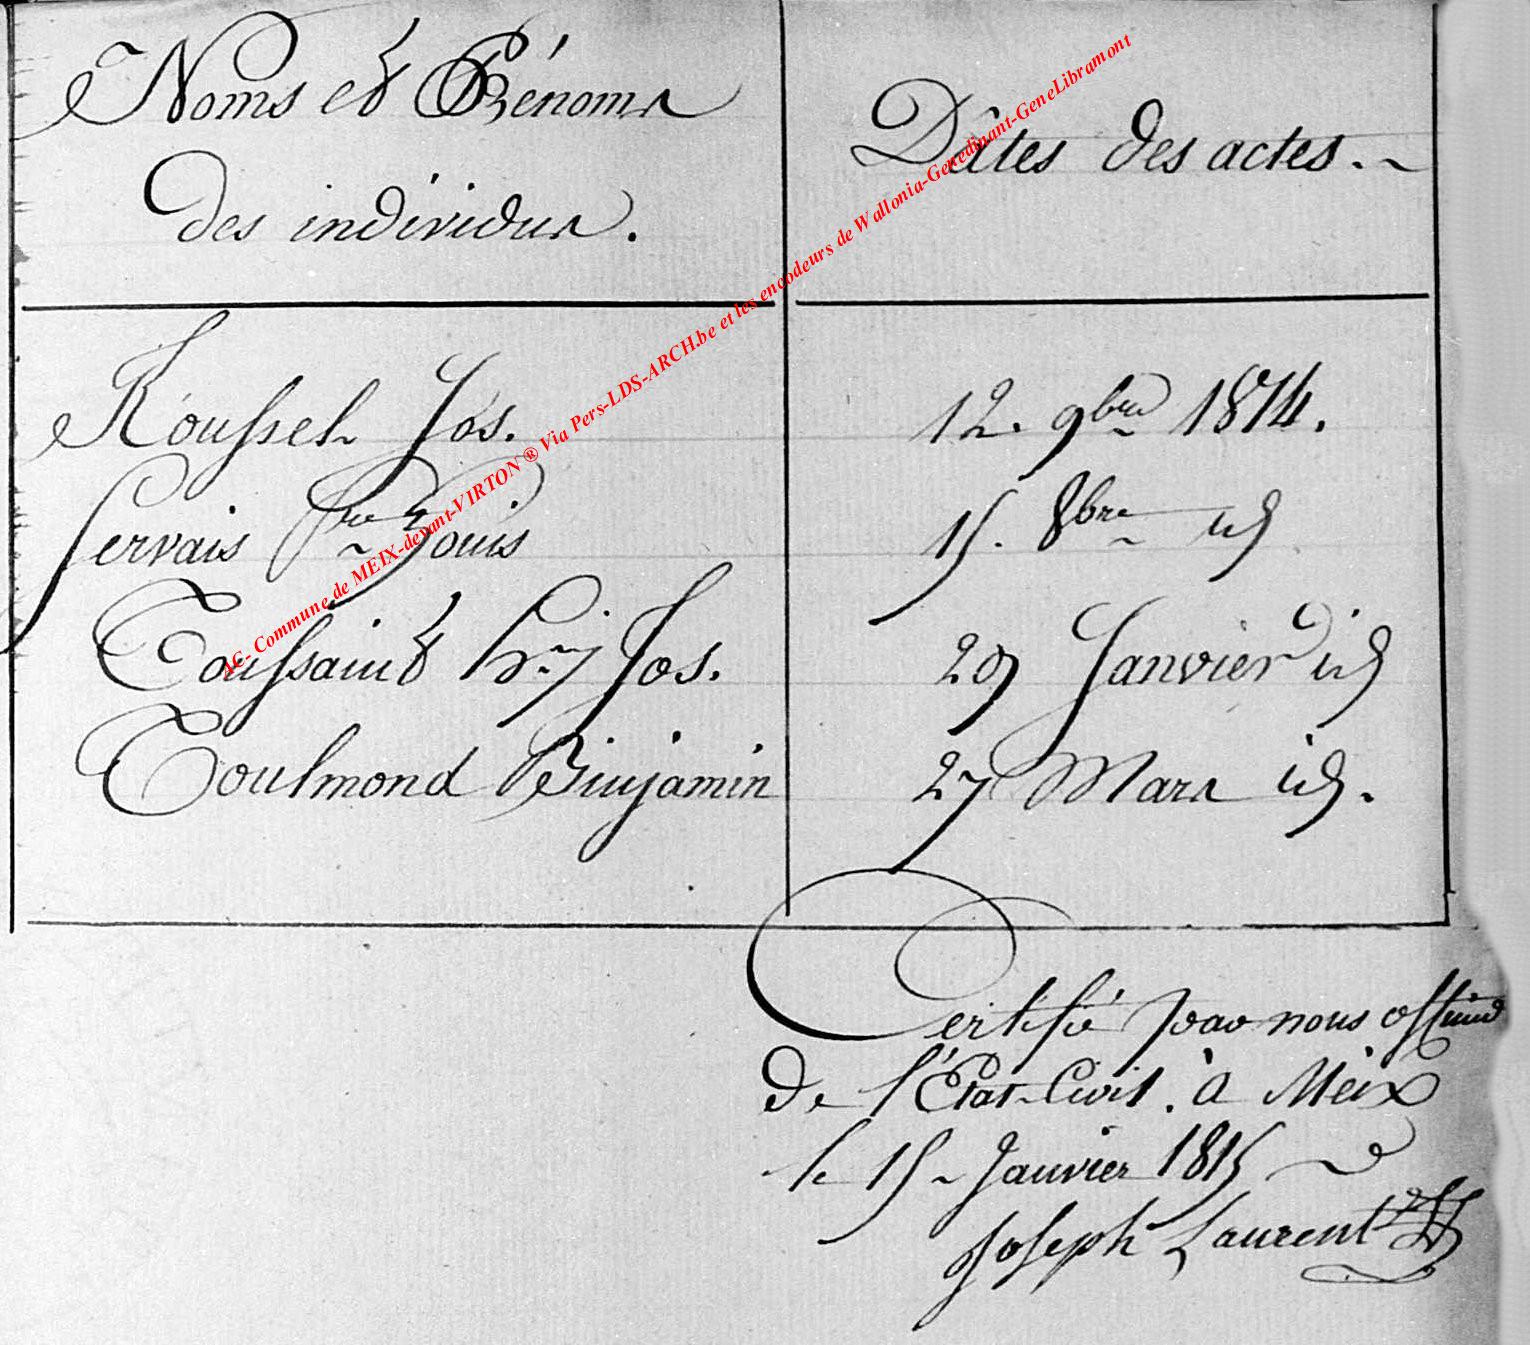 Noms et Prénoms Dâtes des actes.
des individus.
Roussel Jos. 12. 9bre 1814.
Servais Louis 15. 8bre id
Toussaint hry Jos. 29 Janvier id
Toulmond Binjamin 27 Mars id.
Certifié par nous officier
de l'Etat-Civil. à Meix
le 15 Janvier 1815
Joseph Laurent
AC- Commune de MEIX-devant-VIRTON ® Via Pers-LDS-ARCH.be et les encodeurs de Wallonia-Genedinant-GeneLibramont